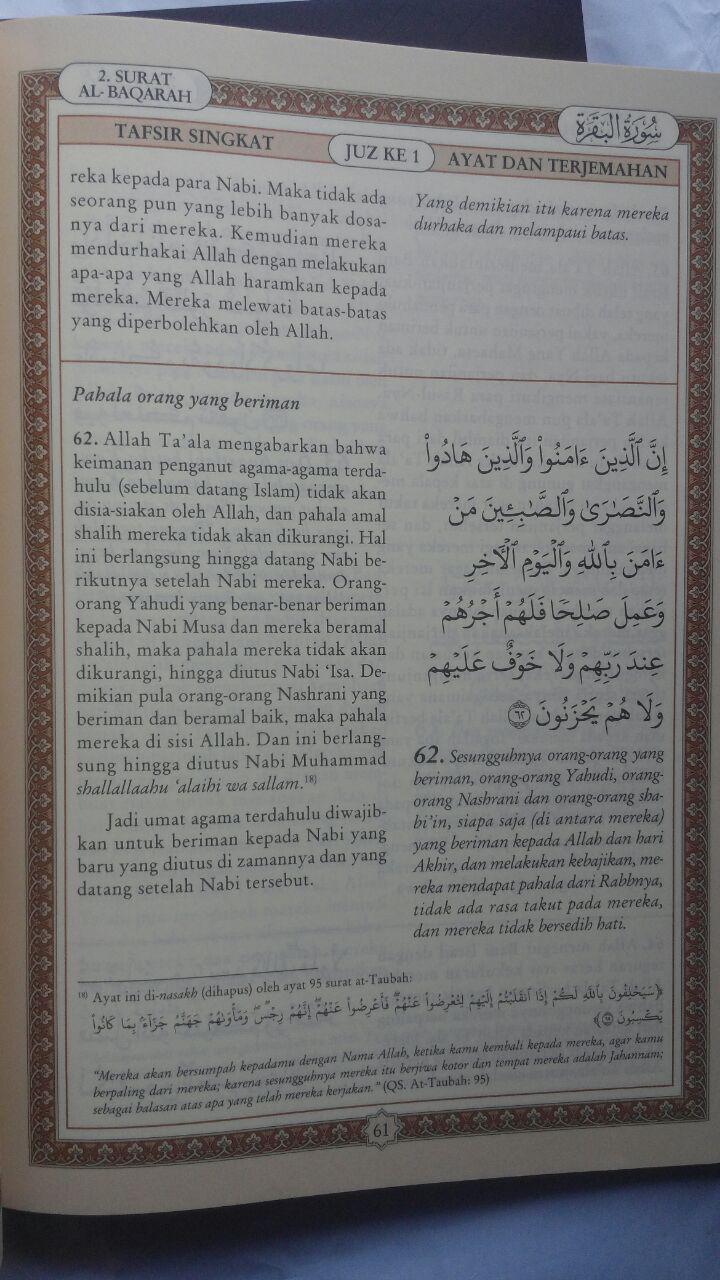 2. SURAT
AL-BAQARAH
سُورَةُ البَقَرَةِ
TAFSIR SINGKAT
JUZ KE 1
AYAT DAN TERJEMAHAN
reka kepada para Nabi. Maka tidak ada
seorang pun yang lebih banyak dosa-
nya dari mereka. Kemudian mereka
mendurhakai Allah dengan melakukan
apa-apa yang Allah haramkan kepada
mereka. Mereka melewati batas-batas
yang diperbolehkan oleh Allah.
Yang demikian itu karena mereka
durhaka dan melampaui batas.
Pahala orang yang beriman
62. Allah Ta'ala mengabarkan bahwa
keimanan penganut agama-agama terda-
hulu (sebelum datang Islam) tidak akan
disia-siakan oleh Allah, dan pahala amal
shalih mereka tidak akan dikurangi. Hal
ini berlangsung hingga datang Nabi be-
rikutnya setelah Nabi mereka. Orang-
orang Yahudi yang benar-benar beriman
kepada Nabi Musa dan mereka beramal
shalih, maka pahala mereka tidak akan
dikurangi, hingga diutus Nabi 'Isa. De-
mikian pula orang-orang Nashrani yang
beriman dan beramal baik, maka pahala
mereka di sisi Allah. Dan ini berlang-
sung hingga diutus Nabi Muhammad
shallallaahu 'alaihi wa sallam.18)
Jadi umat agama terdahulu diwajib-
kan untuk beriman kepada Nabi yang
baru yang diutus di zamannya dan yang
datang setelah Nabi tersebut.
إِنَّ ٱلَّذِينَ ءَامَنُوا۟ وَٱلَّذِينَ هَادُوا۟
وَٱلنَّصَٰرَىٰ وَٱلصَّٰبِـِٔينَ مَنْ
ءَامَنَ بِٱللَّهِ وَٱلْيَوْمِ ٱلْأَخِرِ
وَعَمِلَ صَٰلِحًا فَلَهُمْ أَجْرُهُمْ
عِندَ رَبِّهِمْ وَلَا خَوْفٌ عَلَيْهِمْ
وَلَا هُمْ يَحْزَنُونَ ٦٢
62. Sesungguhnya orang-orang yang
beriman, orang-orang Yahudi, orang-
orang Nashrani dan orang-orang sha-
bi'in, siapa saja (di antara mereka)
yang beriman kepada Allah dan hari
Akhir, dan melakukan kebajikan, me-
reka mendapat pahala dari Rabbnya,
tidak ada rasa takut pada mereka,
dan mereka tidak bersedih hati.
18) Ayat ini di-nasakh (dihapus) oleh ayat 95 surat at-Taubah:
﴿سَيَحْلِفُونَ بِٱللَّهِ لَكُمْ إِذَا ٱنقَلَبْتُمْ إِلَيْهِمْ لِتُعْرِضُوا۟ عَنْهُمْ ۖ فَأَعْرِضُوا۟ عَنْهُمْ ۖ إِنَّهُمْ رِجْسٌ ۖ وَمَأْوَىٰهُمْ جَهَنَّمُ جَزَآءًۢ بِمَا كَانُوا۟
يَكْسِبُونَ ٩٥﴾
"Mereka akan bersumpah kepadamu dengan Nama Allah, ketika kamu kembali kepada mereka, agar kamu
berpaling dari mereka; karena sesungguhnya mereka itu berjiwa kotor dan tempat mereka adalah Jahannam;
sebagai balasan atas apa yang telah mereka kerjakan." (QS. At-Taubah: 95)
61